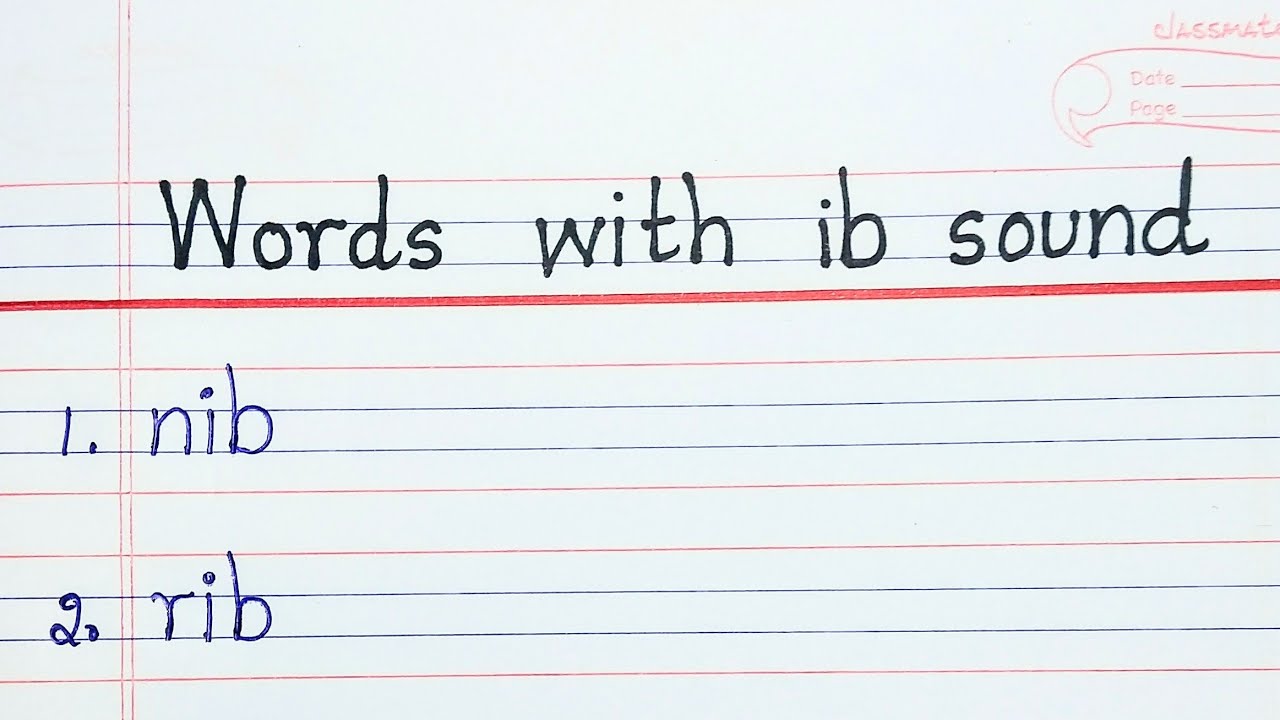 classmate
Date
Page
Words with ib sound
1. nib
2. rib